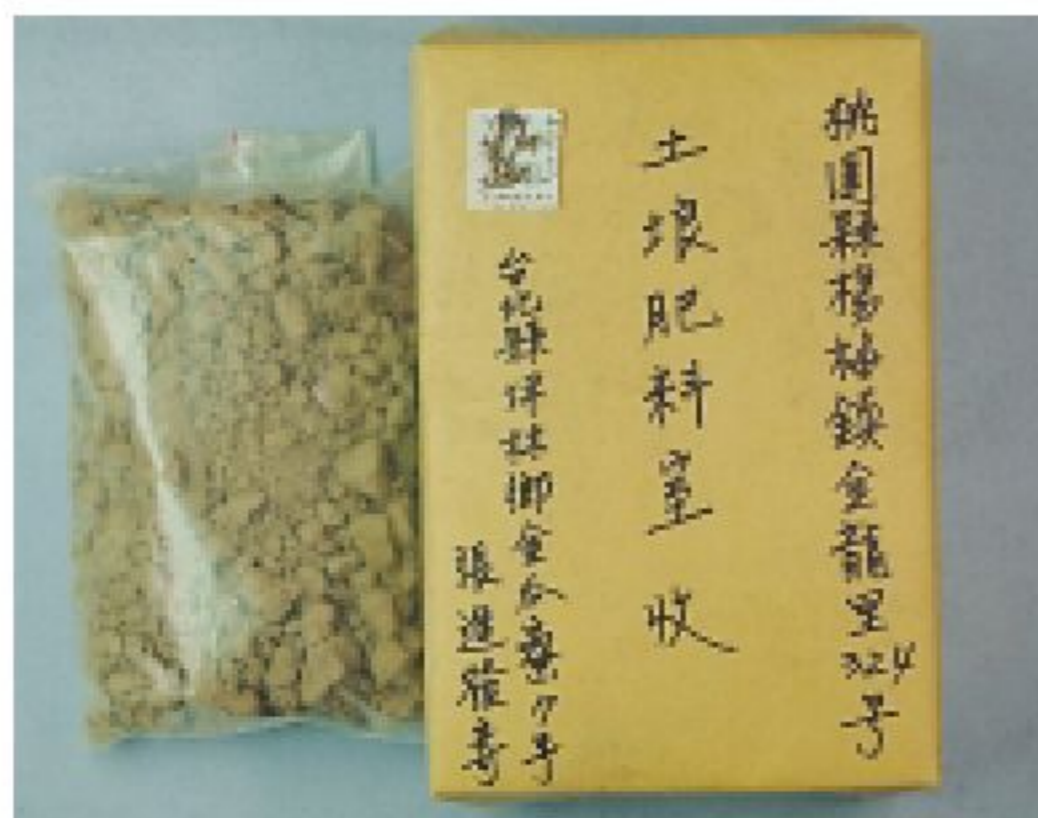 桃園縣楊梅鎮金龍里324号
土壤肥料室 收
台北縣坪林鄉金瓜寮
張進